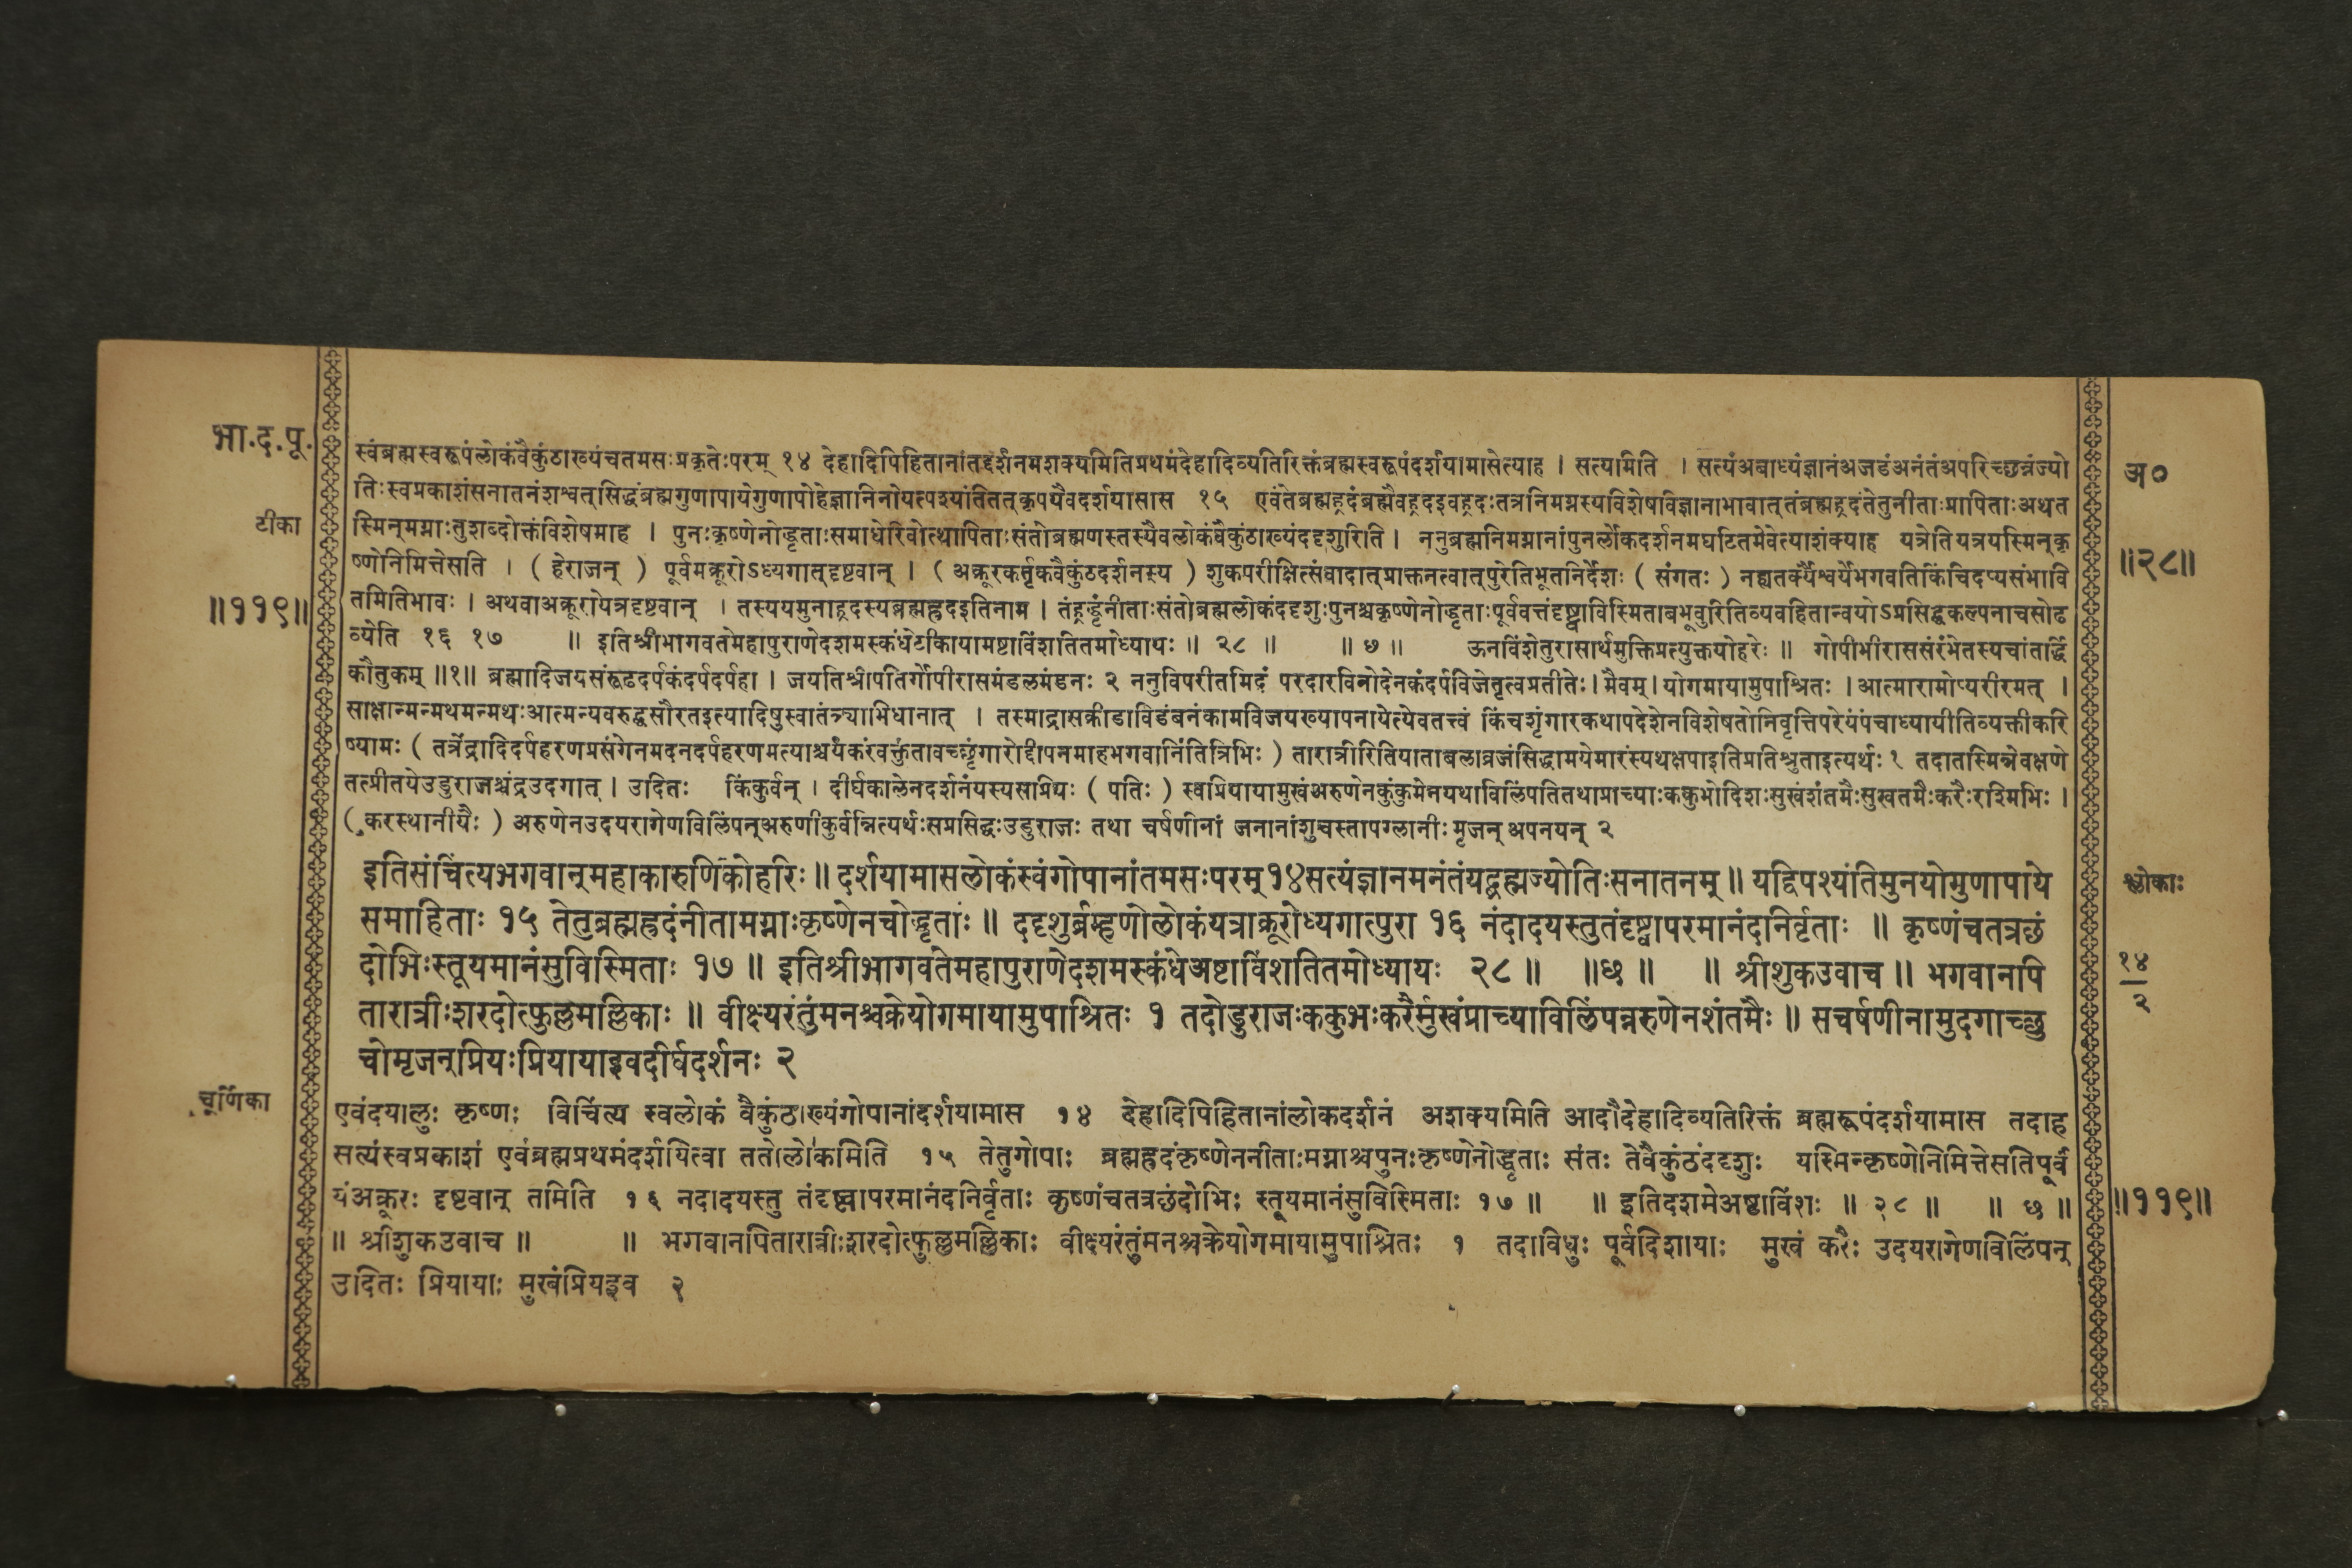 भा.द.पू.
टीका
॥११९॥
स्वंब्रह्मस्वरूपंलोकंवैकुंठाख्यंचतमसःप्रकृतेःपरम् १४ देहादिपिहितानांतद्दर्शनमशक्यमितिप्रथमंदेहादिव्यतिरिक्तंब्रह्मस्वरूपंदर्शयामासेत्याह । सत्यामिति । सत्यंअबाध्यंज्ञानंअजडंअनंतंअपरिच्छन्नंज्यो
तिःस्वप्रकाशंसनातनंशश्वत्सिद्धंब्रह्मगुणापायेगुणापोहेज्ञानिनोयत्पश्यंतितत्कृपयैवदर्शयासास १५ एवंतेब्रह्मह्रदंब्रह्मैवह्रदइवह्रदःतत्रनिमग्नस्यविशेषविज्ञानाभावात्तंब्रह्मह्रदंतेतुनीताःप्रापिताःअथत
स्मिन्मग्नाःतुशब्दोक्तंविशेषमाह । पुनःकृष्णेनोद्धृताःसमाधेरिवोत्थापिताःसंतोब्रह्मणस्तस्यैवलोकंवैकुंठाख्यंददृशुरिति । ननुब्रह्मनिमग्नानांपुनर्लोकदर्शनमघटितमेवेत्याशंक्याह यत्रेतियत्रयस्मिन्कृ
ष्णेनिमित्तेसति । ( हेराजन् ) पूर्वमक्रूरोऽध्यगात्दृष्टवान् । ( अक्रूरकर्तृकवैकुंठदर्शनस्य ) शुकपरीक्षित्संवादात्प्राक्तनत्वात्पुरेतिभूतनिर्देशः ( संगतः ) नह्यतर्क्यैश्वर्येभगवतिकिंचिदप्यसंभावि
तमितिभावः । अथवाअक्रूरायेत्रदृष्टवान् । तस्ययमुनाह्रदस्यब्रह्मह्रदइतिनाम । तंह्रदंनीताःसंतोब्रह्मलोकंददृशुःपुनश्चकृष्णेनोद्धृताःपूर्ववत्तंदृष्ट्वाविस्मिताबभूवुरितिव्यवहितान्वयोऽप्रसिद्धकल्पनाचसोढ
व्येति १६ १७ ॥ इतिश्रीभागवतेमहापुराणेदशमस्कंधेटीकायामष्टाविंशतितमोध्यायः ॥ २८ ॥ ॥ छ ॥ ऊनविंशेतुरासार्थमुक्तिप्रत्युक्तयोहरेः ॥ गोपीभीराससंरंभेतस्यचांतर्द्धि
कौतुकम् ॥१॥ ब्रह्मादिजयसंरूढदर्पकंदर्पदर्पहा । जयतिश्रीपतिर्गोपीरासमंडलमंडनः २ ननुविपरीतमिदं परदारविनोदेनकंदर्पविजेतृत्वप्रतीतेः।मैवम्।योगमायामुपाश्रितः ।आत्मारामोप्यरीरमत् ।
साक्षान्मन्मथमन्मथःआत्मन्यवरुद्धसौरतइत्यादिषुस्वातंत्र्याभिधानात् । तस्माद्रासक्रीडाविडंबनंकामविजयख्यापनायेत्येवतत्त्वं किंचशृंगारकथापदेशेनविशेषतोनिवृत्तिपरेयंपंचाध्यायीतिव्यक्तीकरि
ष्यामः ( तत्रेंद्रादिदर्पहरणप्रसंगेनमदनदर्पहरणमत्याश्चर्यंकरंवक्तुंतावच्छृंगारोद्दीपनमाहभगवानितित्रिभिः ) तारात्रीरितियाताबलाव्रजंसिद्धामयेमारंस्यथक्षपाइतिप्रतिश्रुताइत्यर्थः १ तदातस्मिन्नेवक्षणे
तत्प्रीतयेउडुराजश्चंद्रउदगात् । उदितः किंकुर्वन् । दीर्घकालेनदर्शनंयस्यसाप्रियः ( पतिः ) स्वप्रियायामुखंअरुणेनकुंकुमेनयथाविलिंपतितथाप्राच्याःककुभोदिशःसुखंशंतमैःसुखतमैःकरैःरश्मिभिः ।
( करस्थानीयैः ) अरुणेनउदयरागेणविलिंपन्अरुणीकुर्वन्नित्यर्थःसप्रसिद्धःउडुराजः तथा चर्षणीनां जनानांशुचस्तापग्लानीःमृजन् अपनयन् २
इतिसंचिंत्यभगवान्महाकारुणिकोहरिः ॥ दर्शयामासलोकंस्वंगोपानांतमसःपरम् १४ सत्यंज्ञानमनंतंयद्ब्रह्मज्योतिःसनातनम् ॥ यद्विपश्यंतिमुनयोमुणापाये
समाहिताः १५ तेतुब्रह्मह्रदंनीतामग्नाःकृष्णेनचोद्धृताः ॥ ददृशुर्ब्रम्हणोलोकंयत्राक्रूरोध्यगात्पुरा १६ नंदादयस्तुतंदृष्ट्वापरमानंदनिर्वृताः ॥ कृष्णंचतत्रछं
दोभिःस्तूयमानंसुविस्मिताः १७ ॥ इतिश्रीभागवतेमहापुराणेदशमस्कंधेअष्टाविंशतितमोध्यायः २८ ॥ ॥छ ॥ ॥ श्रीशुकउवाच ॥ भगवानपि
तारात्रीःशरदोत्फुल्लमल्लिकाः ॥ वीक्ष्यरंतुंमनश्चक्रेयोगमायामुपाश्रितः १ तदोडुराजःककुभःकरैर्मुखंप्राच्याविलिंपन्नरुणेनशंतमैः ॥ सचर्षणीनामुदगाच्छु
चोमृजन्प्रियःप्रियायाइवदीर्घदर्शनः २
चूर्णिका
एवंदयालुः कृष्णः विचिंत्य स्वलोकं वैकुंठाख्यंगोपानांदर्शयामास १४ देहादिपिहितानांलोकदर्शनं अशक्यमिति आदौदेहादिव्यतिरिक्तं ब्रह्मरूपंदर्शयामास तदाह
सत्यंस्वप्रकाशं एवंब्रह्मप्रथमंदर्शयित्वा ततोलोकमिति १५ तेतुगोपाः ब्रह्मह्रदंकृष्णेननीताःमग्नाश्चपुनःकृष्णेनोद्धृताः संतः तेवैकुंठंददृशुः यस्मिन्कृष्णेनिमित्तेसतिपूर्व
यंअक्रूरः दृष्टवान् तमिति १६ नदादयस्तु तंदृष्ट्वापरमानंदनिर्वृताः कृष्णंचतत्रछंदोभिः स्तूयमानंसुविस्मिताः १७ ॥ ॥ इतिदशमेअष्टाविंशः ॥ २८ ॥ ॥ छ ॥
॥ श्रीशुकउवाच ॥ ॥ भगवानपितारात्रीःशरदोत्फुल्लमल्लिकाः वीक्ष्यरंतुंमनश्चक्रेयोगमायामुपाश्रितः १ तदाविधुः पूर्वदिशायाः मुखं करैः उदयरागेणविलिंपन्
उदितः प्रियायाः मुखंप्रियइव २
अ०
॥२८॥
श्लोकाः
१४
२
॥११९॥